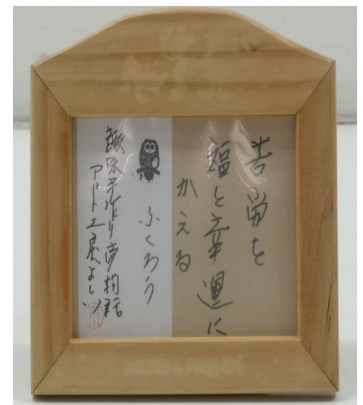 苦労を
福と幸運に
かえる
ふくろう
趣味手作り夢物語
アート工房よしい